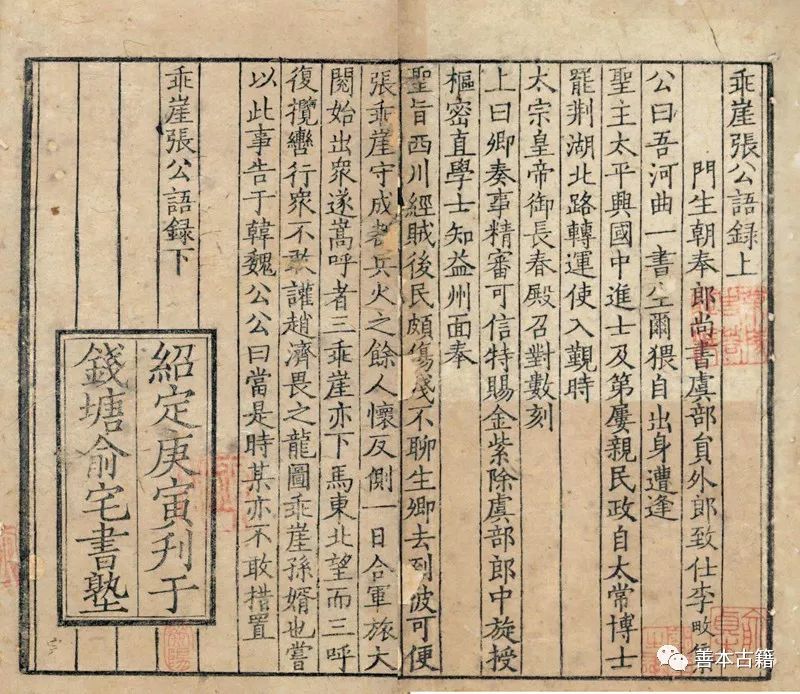 乖崖張公語錄上
門生朝奉郎尚書虞部貟外郎致仕李畋集
公曰吾河曲一書生爾猥自出身遭逢
聖主太平興國中進士及第屢親民政自太常博士
罷荆湖北路轉運使入覲時
太宗皇帝御長春殿召對數刻
上曰卿奏事精審可信特賜金紫除虞部郎中旋授
樞密直學士知益州面奉
聖旨西川經賊後民頗傷殘不聊生卿去到彼可便
張乖崖守成都兵火之餘人懷反側一日合軍旅大
閱始出衆遂嵩呼者三乖崖亦下馬東北望而三呼
復攬轡行衆不敢讙趙濟畏之龍圖乖崖孫婿也嘗
以此事告于韓魏公公曰當是時某亦不敢措置
乖崖張公語録下
紹定庚寅刋于
錢塘俞宅書塾
善本古籍